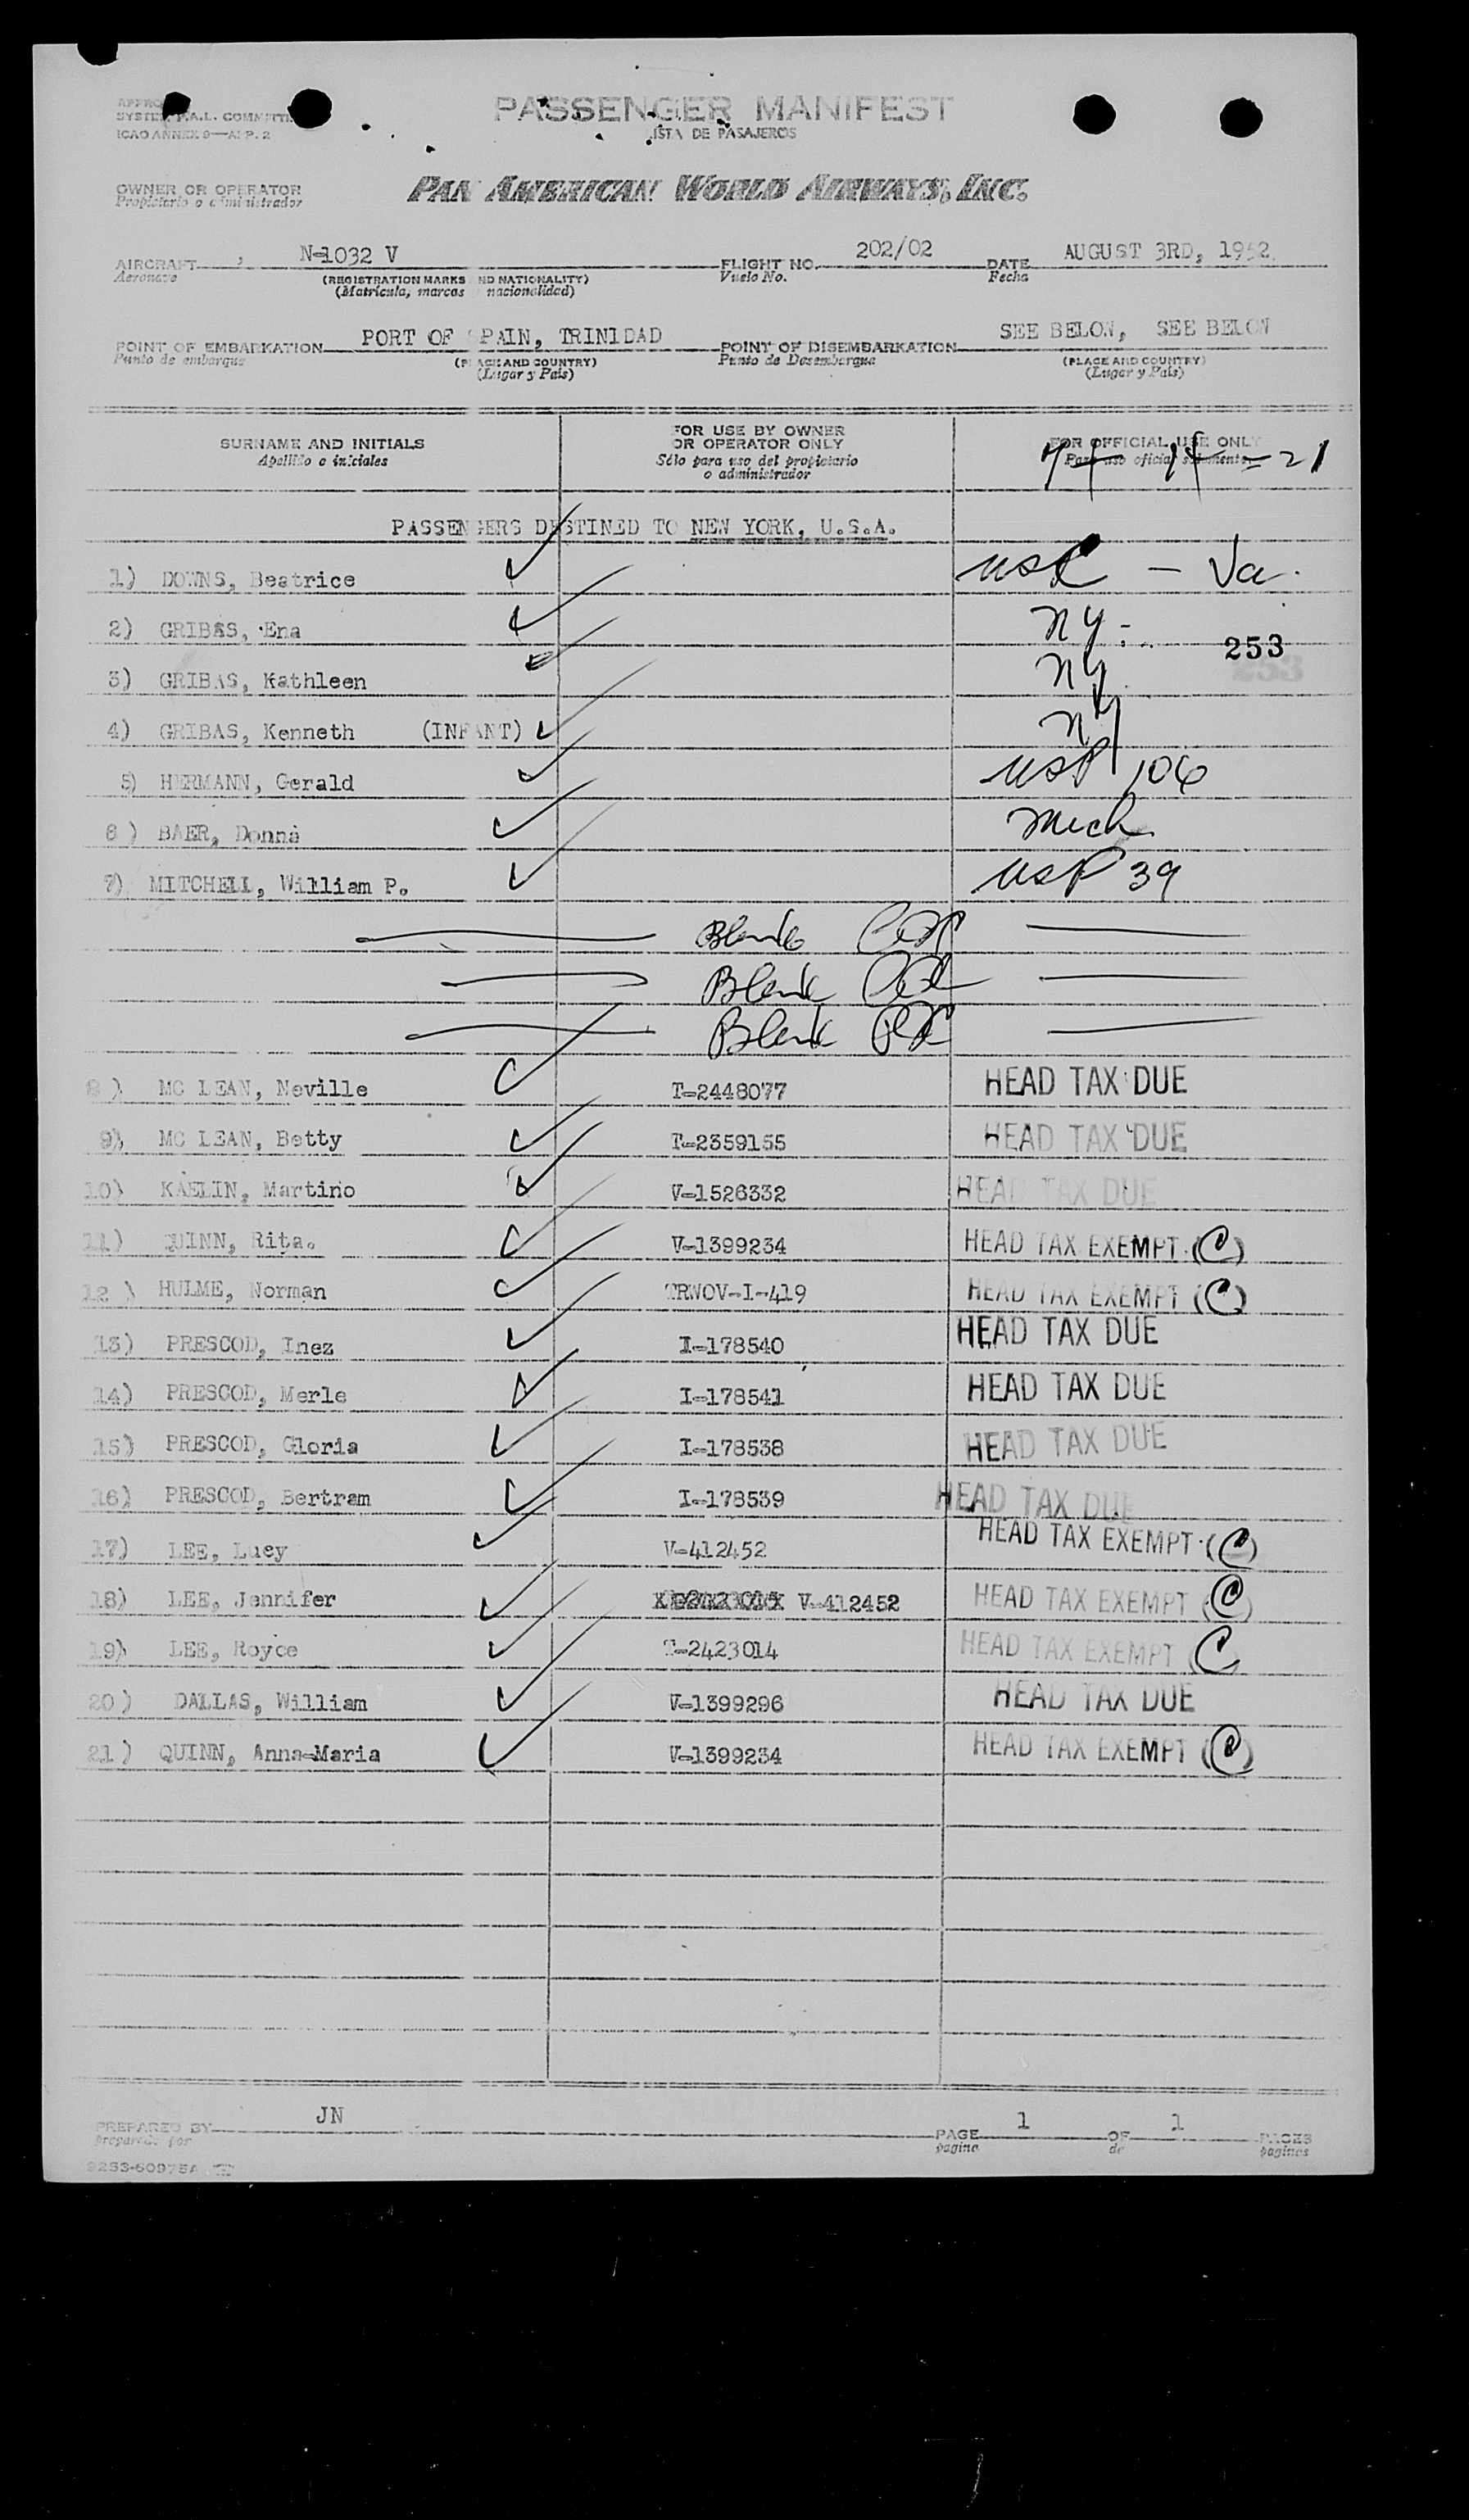 PASSENGER MANIFEST
LISTA DE PASAJEROS
SYSTEM F.A.L. COMMITTEE
ICAO ANNEX 9—AP P. 2
OWNER OR OPERATOR
Propietario o administrador
PAN AMERICAN WORLD AIRWAYS, INC.
AIRCRAFT N-1032 V FLIGHT NO. 202/02 DATE AUGUST 3RD, 1952.
Aeronave (REGISTRATION MARKS AND NATIONALITY) Vuelo No. Fecha
(Matrícula, marcas nacionalidad)
POINT OF EMBARKATION PORT OF SPAIN, TRINIDAD POINT OF DISEMBARKATION SEE BELOW, SEE BELOW
Punto de embarque (PLACE AND COUNTRY) Punto de Desembarque (PLACE AND COUNTRY)
(Lugar y País) (Lugar y País)
SURNAME AND INITIALS FOR USE BY OWNER OR OPERATOR ONLY FOR OFFICIAL USE ONLY
Apellido e iniciales Sólo para uso del propietario o administrador Para uso oficial solamente
= 21
PASSENGERS DESTINED TO NEW YORK, U.S.A.
1) DOWNS, Beatrice USC — Va.
2) GRIBAS, Ena NY
253
3) GRIBAS, Kathleen NY
4) GRIBAS, Kenneth (INFANT) NY
5) HERMANN, Gerald USP 106
6) BAER, Donna Mich
7) MITCHELL, William P. USP 39
Blank
Blank
Blank
8) MC LEAN, Neville T-2448077 HEAD TAX DUE
9) MC LEAN, Betty T-2359155 HEAD TAX DUE
10) KAELIN, Martino V-1526332 HEAD TAX DUE
11) QUINN, Rita. V-1399234 HEAD TAX EXEMPT (C)
12) HULME, Norman TRWOV-I-419 HEAD TAX EXEMPT (C)
13) PRESCOD, Inez I-178540 HEAD TAX DUE
14) PRESCOD, Merle I-178541 HEAD TAX DUE
15) PRESCOD, Gloria I-178538 HEAD TAX DUE
16) PRESCOD, Bertram I-178539 HEAD TAX DUE
17) LEE, Lucy V-412452 HEAD TAX EXEMPT (C)
18) LEE, Jennifer V-412452 HEAD TAX EXEMPT (C)
19) LEE, Royce T-2423014 HEAD TAX EXEMPT (C)
20) DALLAS, William V-1399296 HEAD TAX DUE
21) QUINN, Anna-Maria V-1399234 HEAD TAX EXEMPT (C)
PREPARED BY JN PAGE 1 OF 1 PAGES
Preparado por pagina de paginas